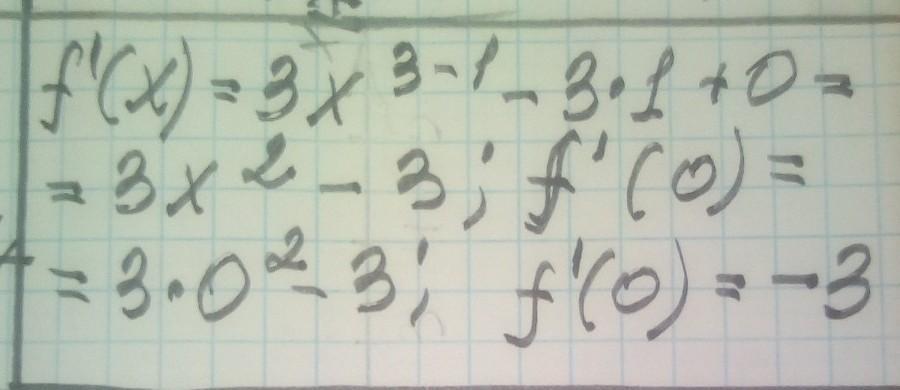 f'(x) = 3x^{3-1} - 3·1 + 0 =
= 3x^2 - 3; f'(0) =
= 3·0^2 - 3; f'(0) = -3